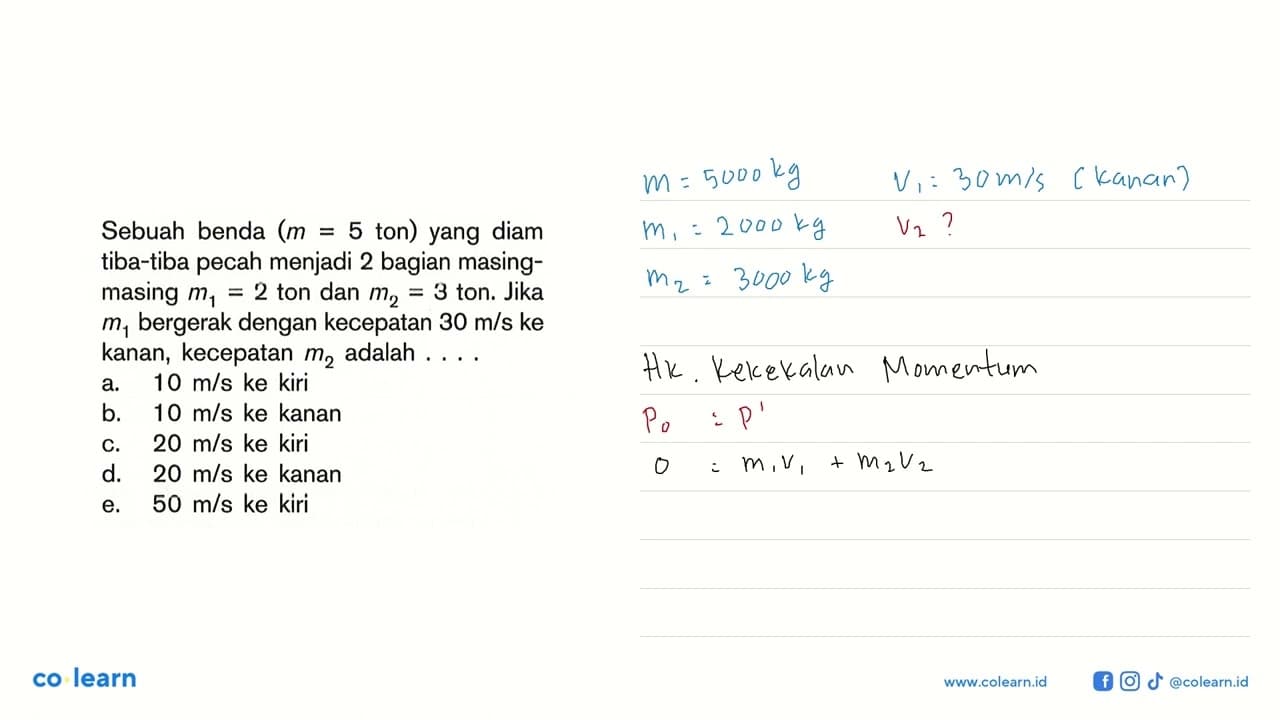 Sebuah benda (m = 5 ton) yang diam
tiba-tiba pecah menjadi 2 bagian masing-
masing m₁ = 2 ton dan m₂ = 3 ton. Jika
m₁ bergerak dengan kecepatan 30 m/s ke
kanan, kecepatan m₂ adalah . . . .
a. 10 m/s ke kiri
b. 10 m/s ke kanan
c. 20 m/s ke kiri
d. 20 m/s ke kanan
e. 50 m/s ke kiri
m = 5000 kg
v₁ = 30 m/s (kanan)
m₁ = 2000 kg
v₂ ?
m₂ = 3000 kg
Hk. Kekekalan Momentum
P₀ = P'
0 = m₁v₁ + m₂v₂
co learn
www.colearn.id
@colearn.id